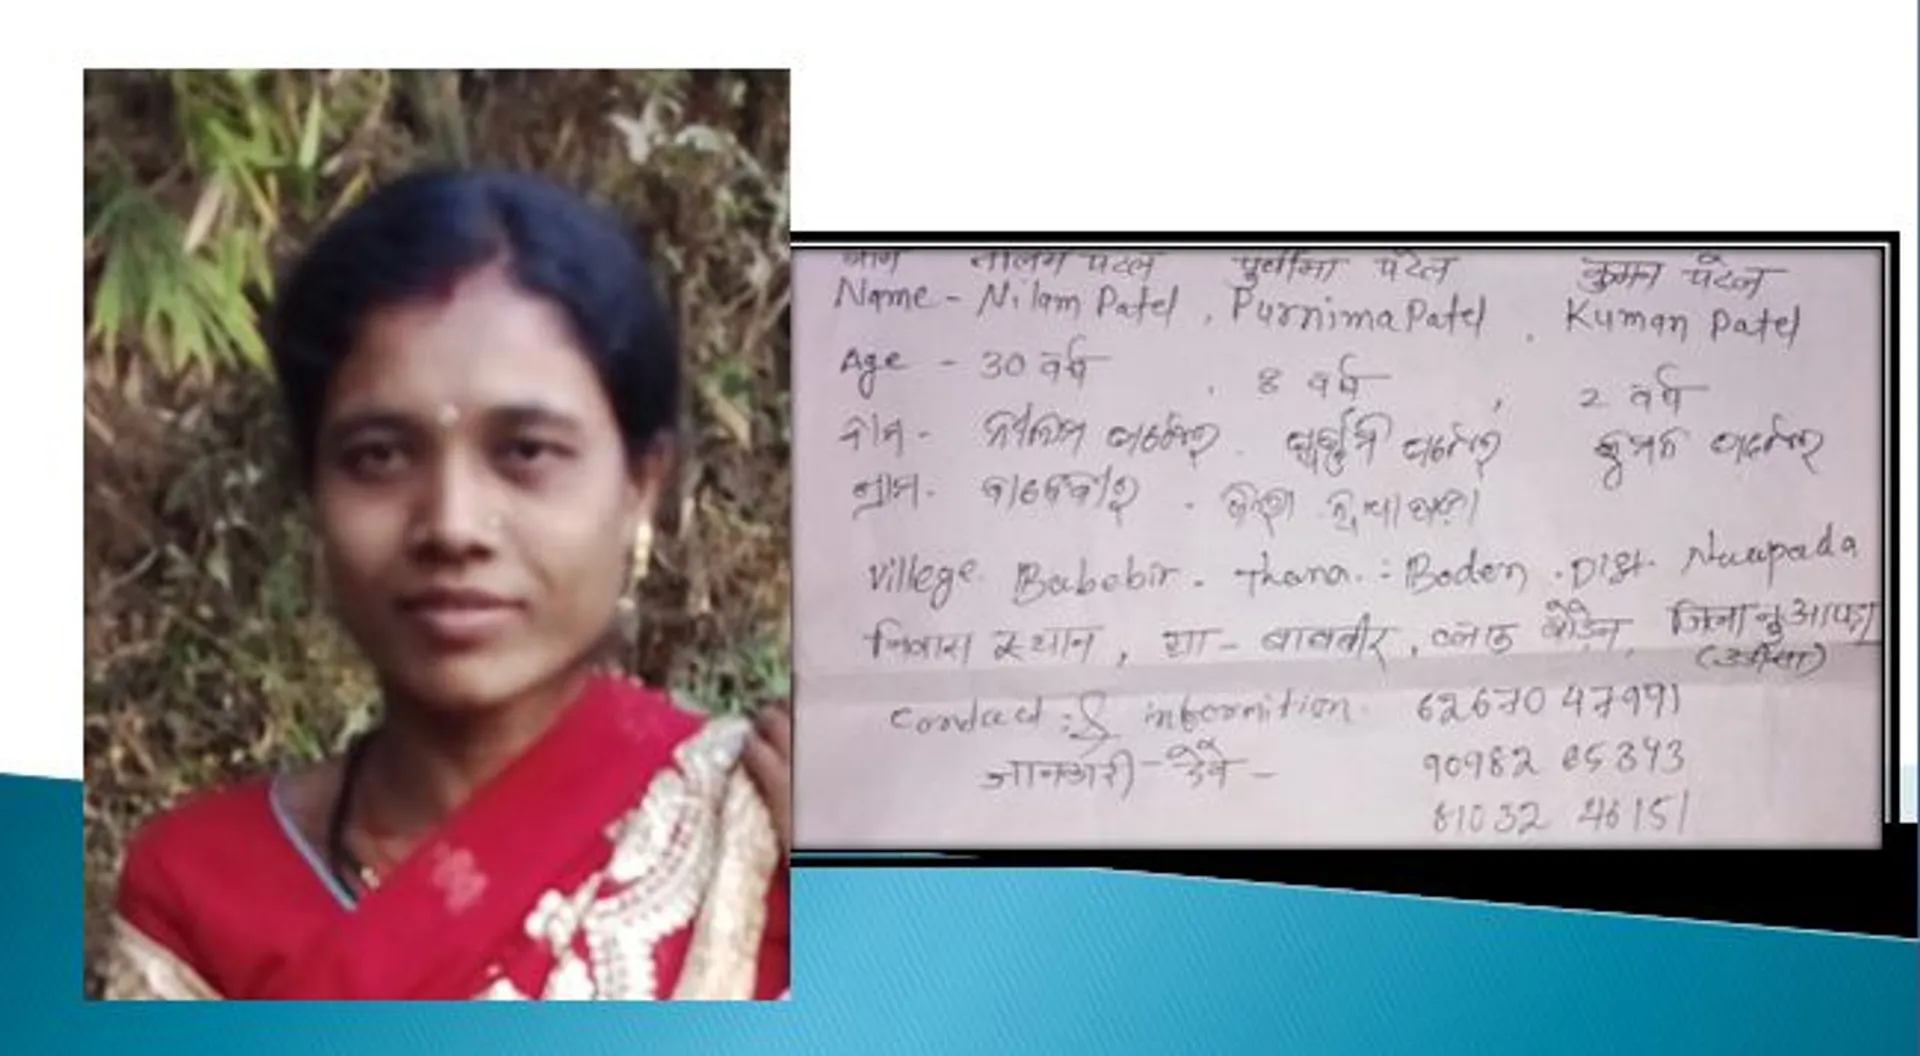 नाम नीलम पटेल पुर्णीमा पटेल कुमन पटेल
Name - Nilam Patel, Purnima Patel, Kuman Patel
Age - 30 वर्ष, 8 वर्ष, 2 वर्ष
ପଟେଲ ପଟେଲ ପଟେଲ
ଗ୍ରାମ-
Villege Babebir. Thana.: Boden .Dist. Nuapada
निवास स्थान, ग्रा- बाबवीर, बोडेन, जिला नुआपड़ा
(उड़ीसा)
informition. 62670 47991
जानकारी - देवें - 90982 65393
81032 46151